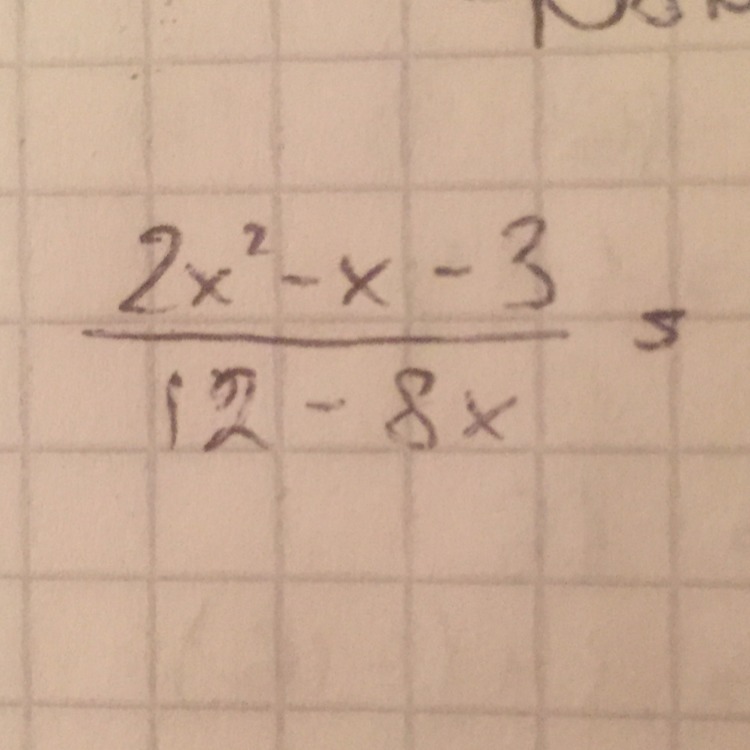 2x² - x - 3
12 - 8x
=